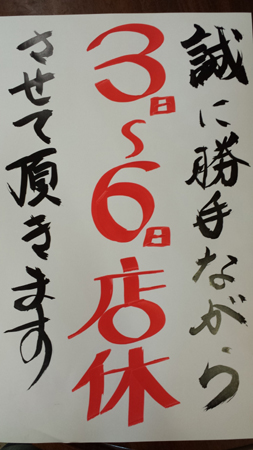 誠に勝手ながら
3日〜6日店休
させて頂きます